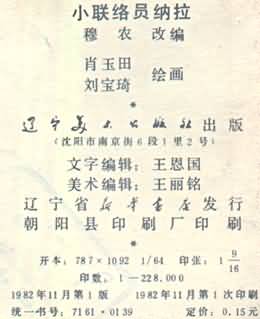 小联络员纳拉
穆农 改编
肖玉田
刘宝琦 绘画
*
辽宁美术出版社出版
(沈阳市南京街6段1里2号)
文字编辑：王恩国
美术编辑：王丽铭
辽宁省新华书店发行
朝阳县印刷厂印刷
*
开本：787×1092 1/64 印张：1 9/16
印数：1—228.000
1982年11月第1版 1982年11月第1次印刷
统一书号：7161·0139 定价：0.15元